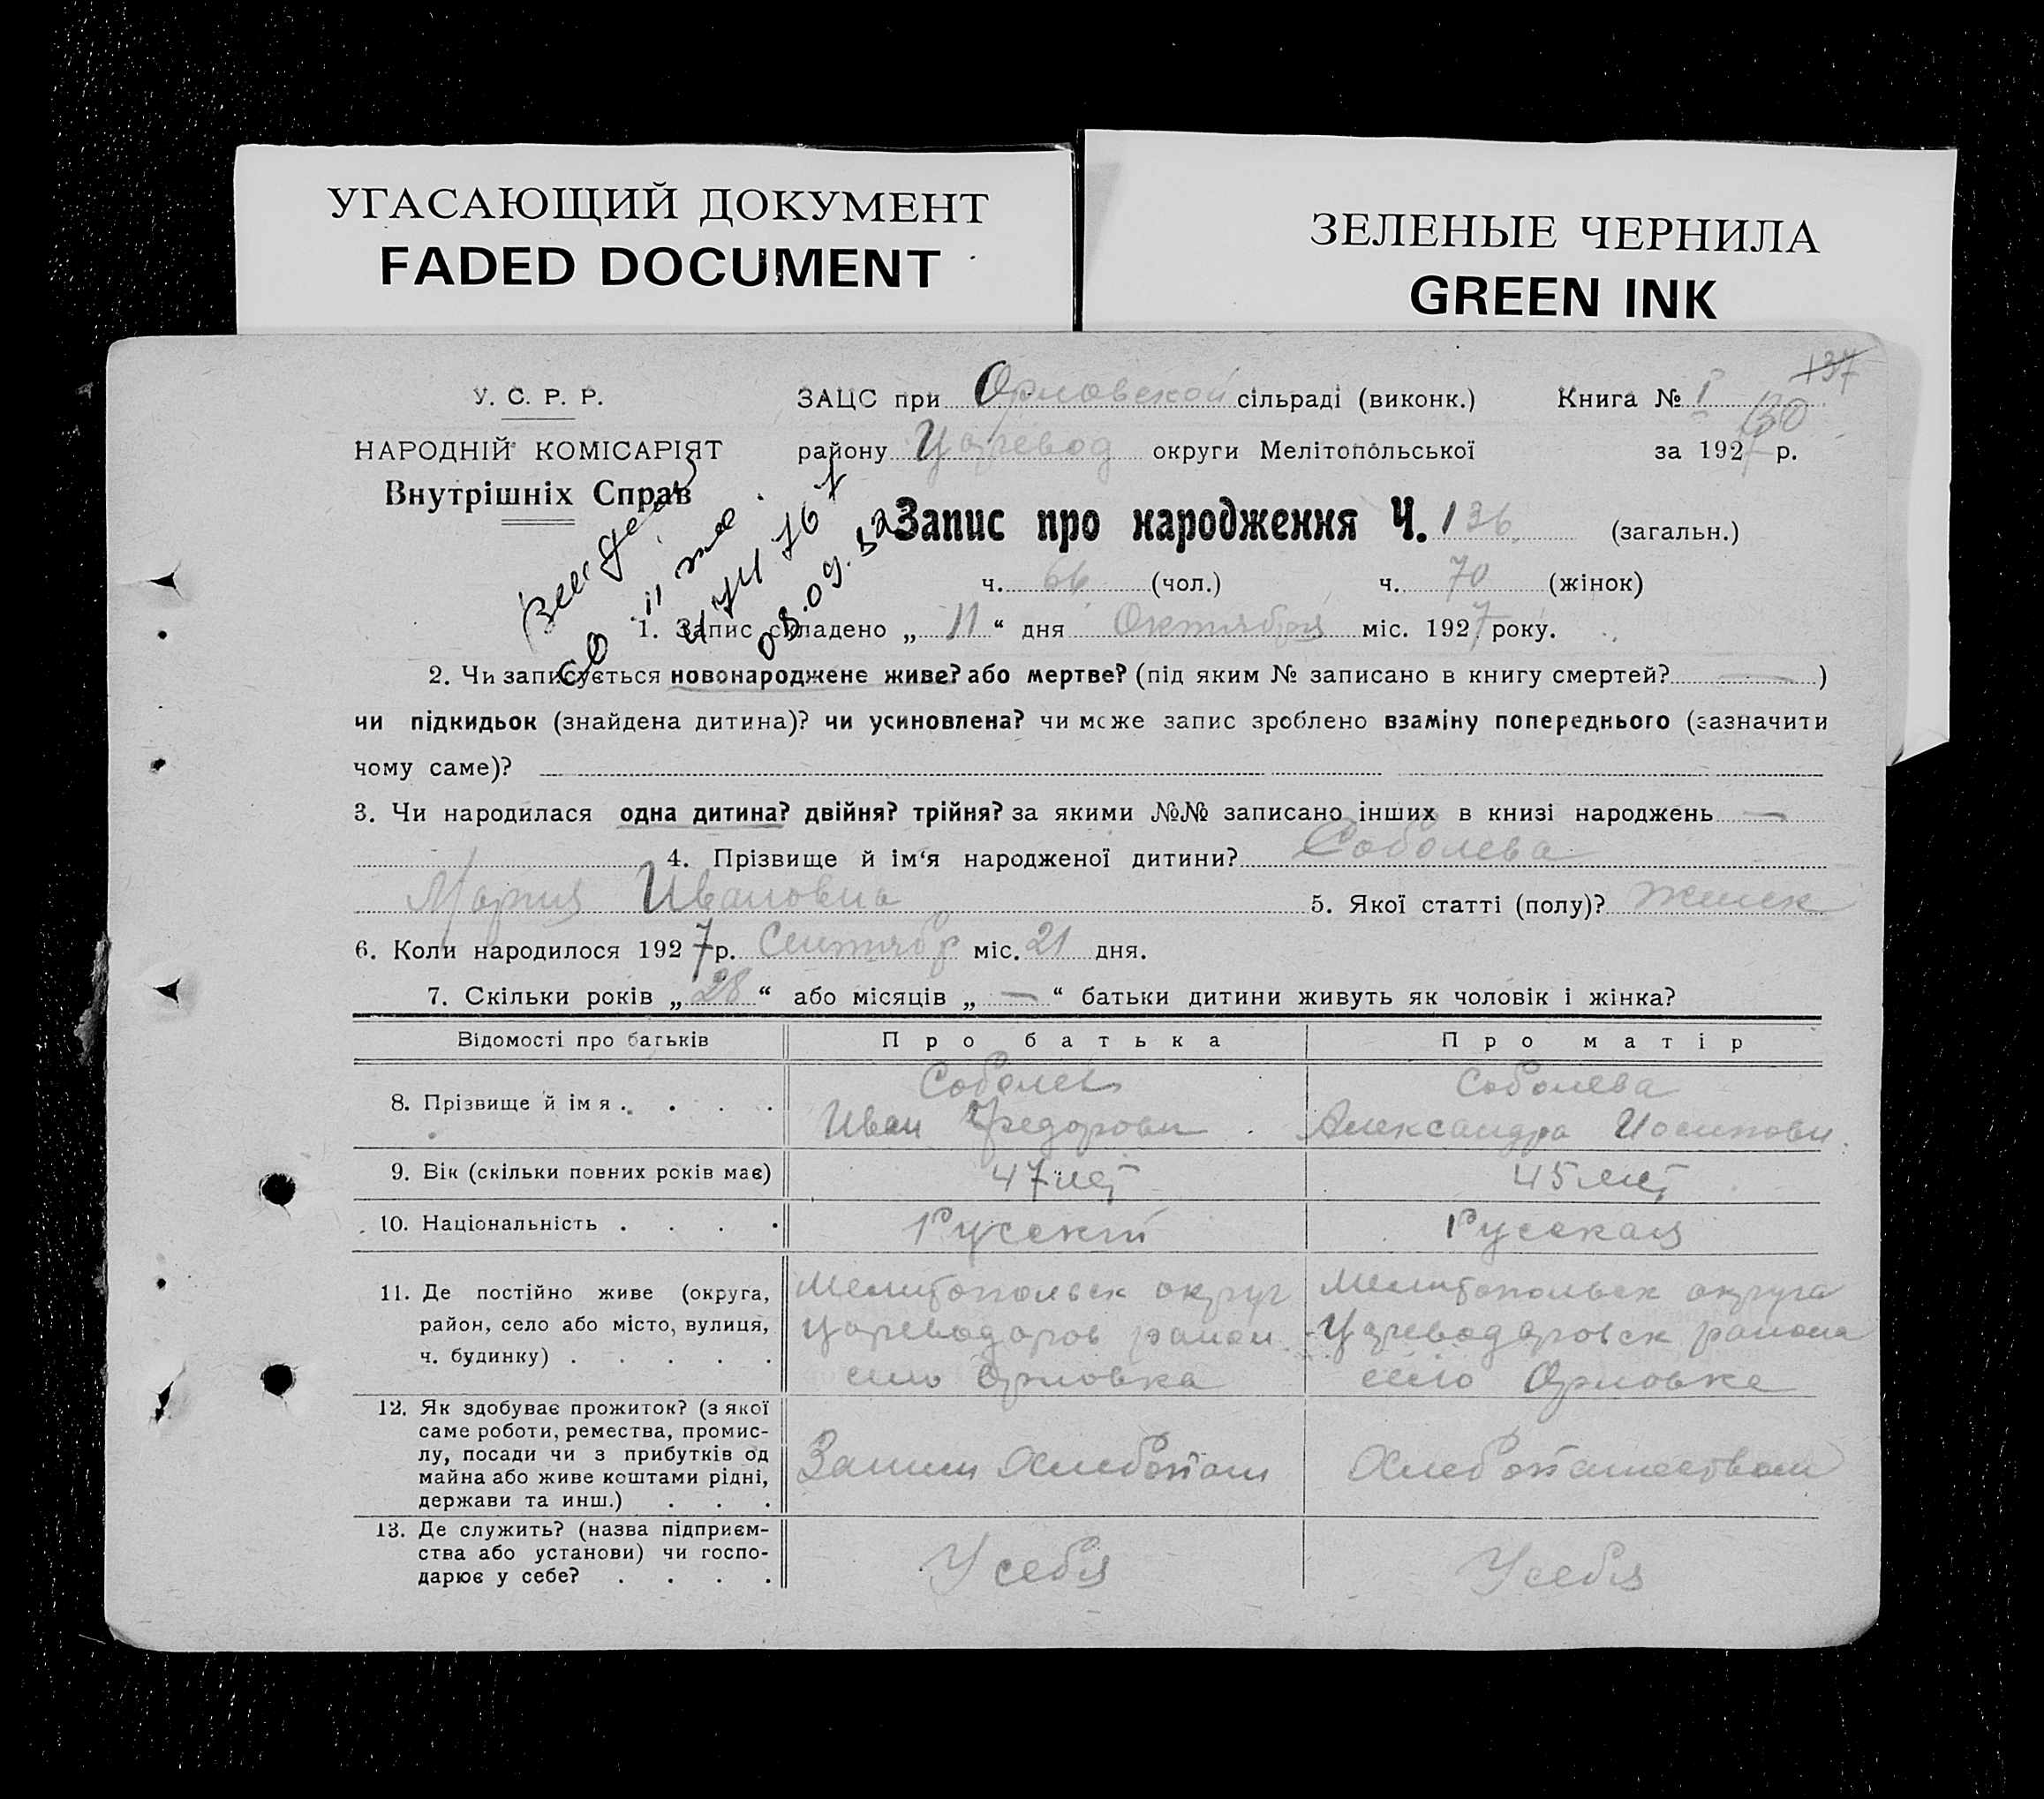 УГАСАЮЩИЙ ДОКУМЕНТ
FADED DOCUMENT
ЗЕЛЕНЫЕ ЧЕРНИЛА
GREEN INK
137
У. С. Р. Р.
НАРОДНІЙ КОМІСАРІЯТ
Внутрішніх Справ
ЗАЦС при Орловской сільраді (виконк.) Книга № I
130
району Царевод округи Мелітопольської за 1927 р.
Запис про народження Ч. 136 (загальн.)
ч. 66 (чол.) ч. 70 (жінок)
1. Запис складено „ 11 “ дня Октября міс. 1927 року.
2. Чи записується новонароджене живе? або мертве? (під яким № записано в книгу смертей? — )
чи підкидьок (знайдена дитина)? чи усиновлена? чи може запис зроблено взаміну попереднього (зазначити
чому саме)?
3. Чи народилася одна дитина? двійня? трійня? за якими №№ записано інших в книзі народжень —
4. Прізвище й ім‘я народженої дитини? Соболева
Мария Ивановна 5. Якої статті (полу)? женск
6. Коли народилося 1927 р. Сентябр міс. 21 дня.
7. Скільки років „ 28 “ або місяців „ — “ батьки дитини живуть як чоловік і жінка?
Відомості про батьків Про батька Про матір
8. Прізвище й імя . . . .
Соболев
Иван Федорови
Соболева
Александра Иосипови.
9. Вік (скільки повних років має) 47 лет 45 лет
10. Національність . . . . Русскій Русская
11. Де постійно живе (округа,
район, село або місто, вулиця,
ч. будинку) . . . . .
Мелитопольск округ
Цареводаров район
село Орловка
Мелитопольск округа
Цареводаровск района
село Орловка
12. Як здобуває прожиток? (з якої
саме роботи, ремества, промис-
лу, посади чи з прибутків од
майна або живе коштами рідні,
держави та инш.) . . .
Хлебопаш
Хлебопашеством
13. Де служить? (назва підприєм-
ства або установи) чи госпо-
дарює у себе? . . . .
У себя
У себя